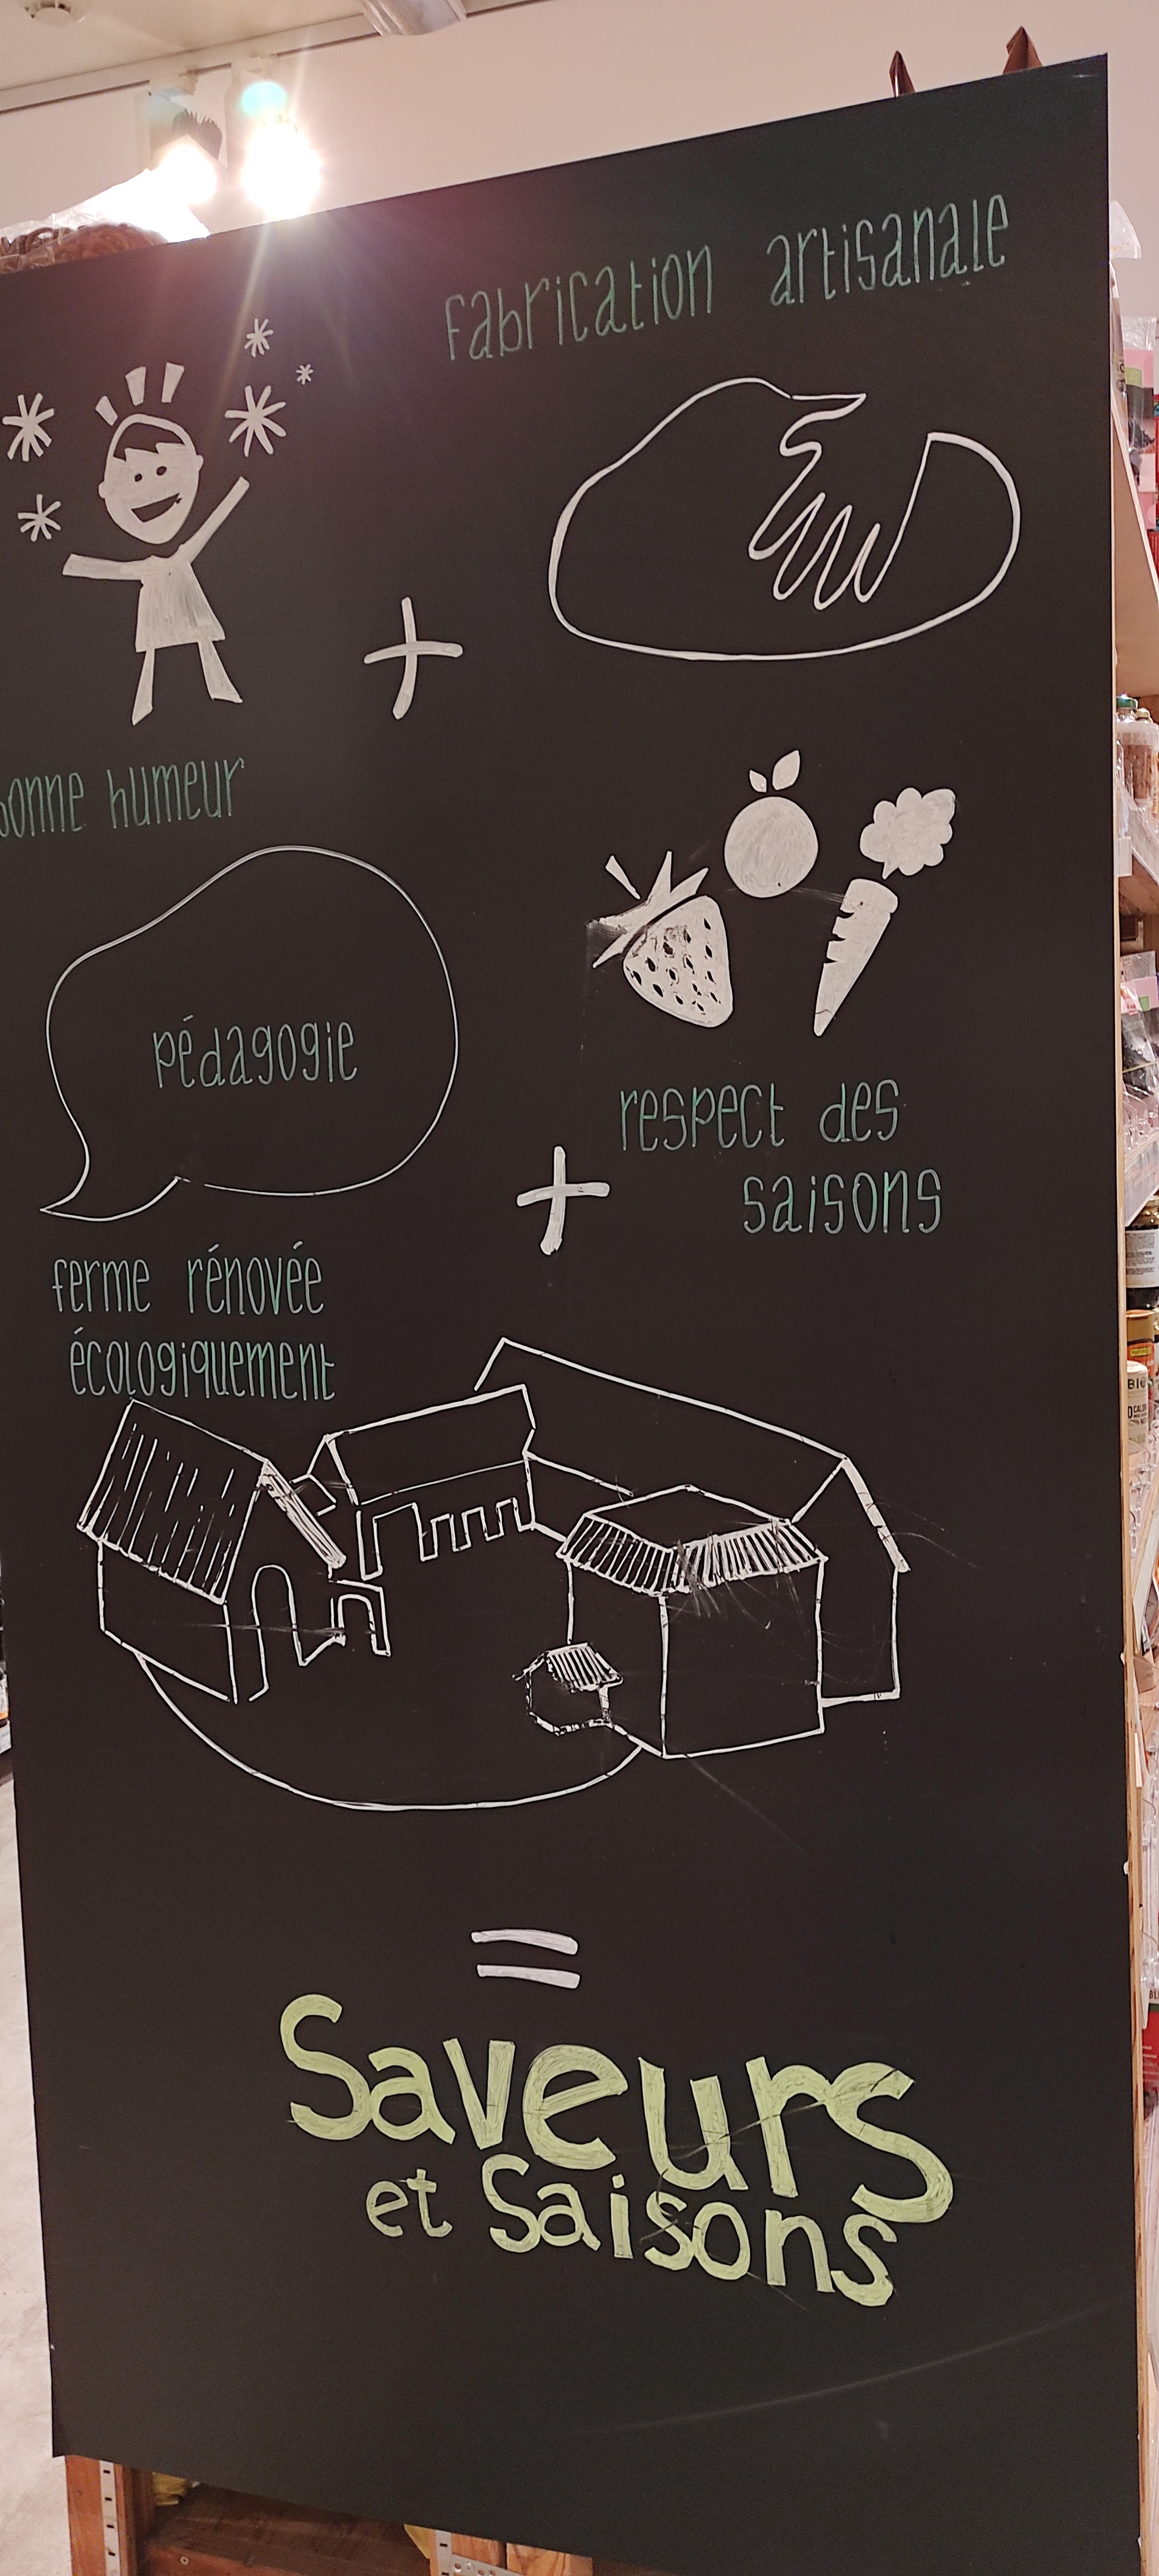 fabrication artisanale
+
bonne humeur
pédagogie
respect des
saisons
+
ferme rénovée
écologiquement
=
Saveurs
et Saisons
BIO